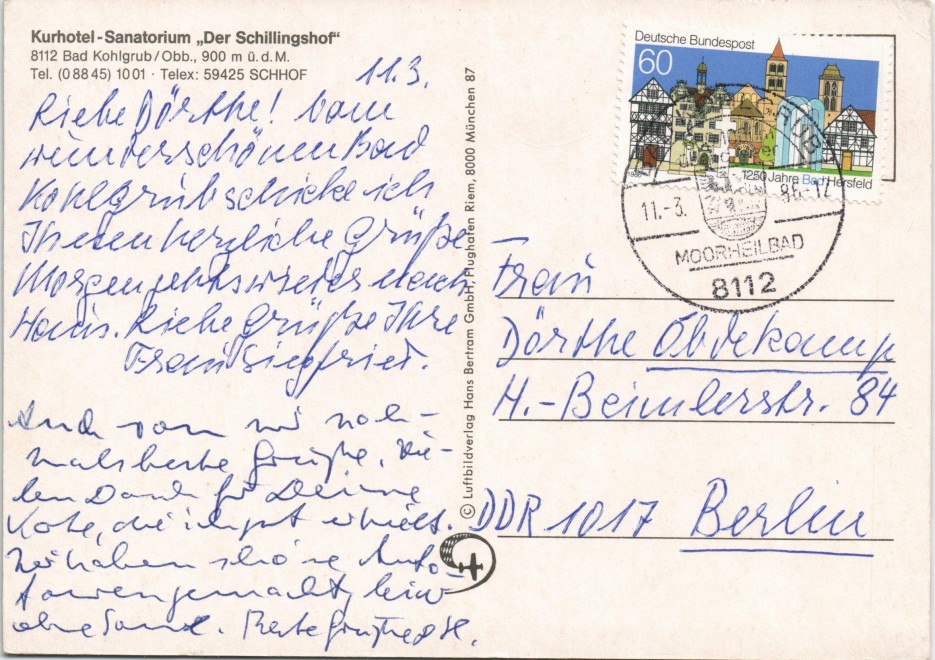 Kurhotel-Sanatorium „Der Schillingshof“
8112 Bad Kohlgrub/Obb., 900 m ü. d. M.
Tel. (0 88 45) 10 01 · Telex: 59425 SCHHOF
11.3.
Liebe Dörthe! Vom
wunderschönen Bad
Kohlgrub schicke ich
Ihnen herzliche Grüße
Morgen gehts wieder nach
Haus. Liebe Grüße Ihre
Frau Siegfried.
Auch von mir noch-
mals beste Grüße, Vie-
len Dank für Deine
Karte, die ich gut erhielt.
Wir haben schöne Auto-
touren gemacht, hier
ohne Sonne. Beste Grüße
© Luftbildverlag Hans Bertram GmbH, Flughafen Riem, 8000 München 87
Deutsche Bundespost
60
1250 Jahre Bad Hersfeld
11.-3.
86.-17
MOORHEILBAD
8112
Frau
Dörthe Obdekamp
H.-Beimlerstr. 84
DDR 1017 Berlin